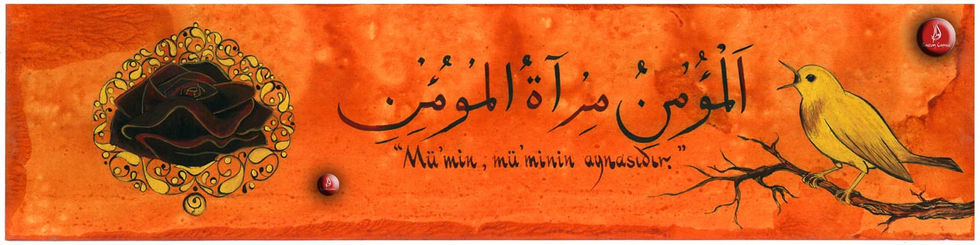 اَلْمُؤْمِنُ مِرْآةُ الْمُؤْمِنِ
“Mü’min, mü’minin aynasıdır.”